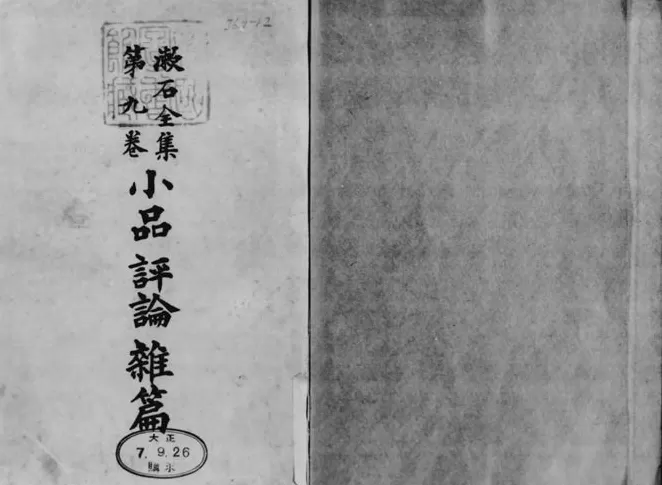 漱石全集
第九卷
小品 評論 雜篇
大正
7. 9. 26